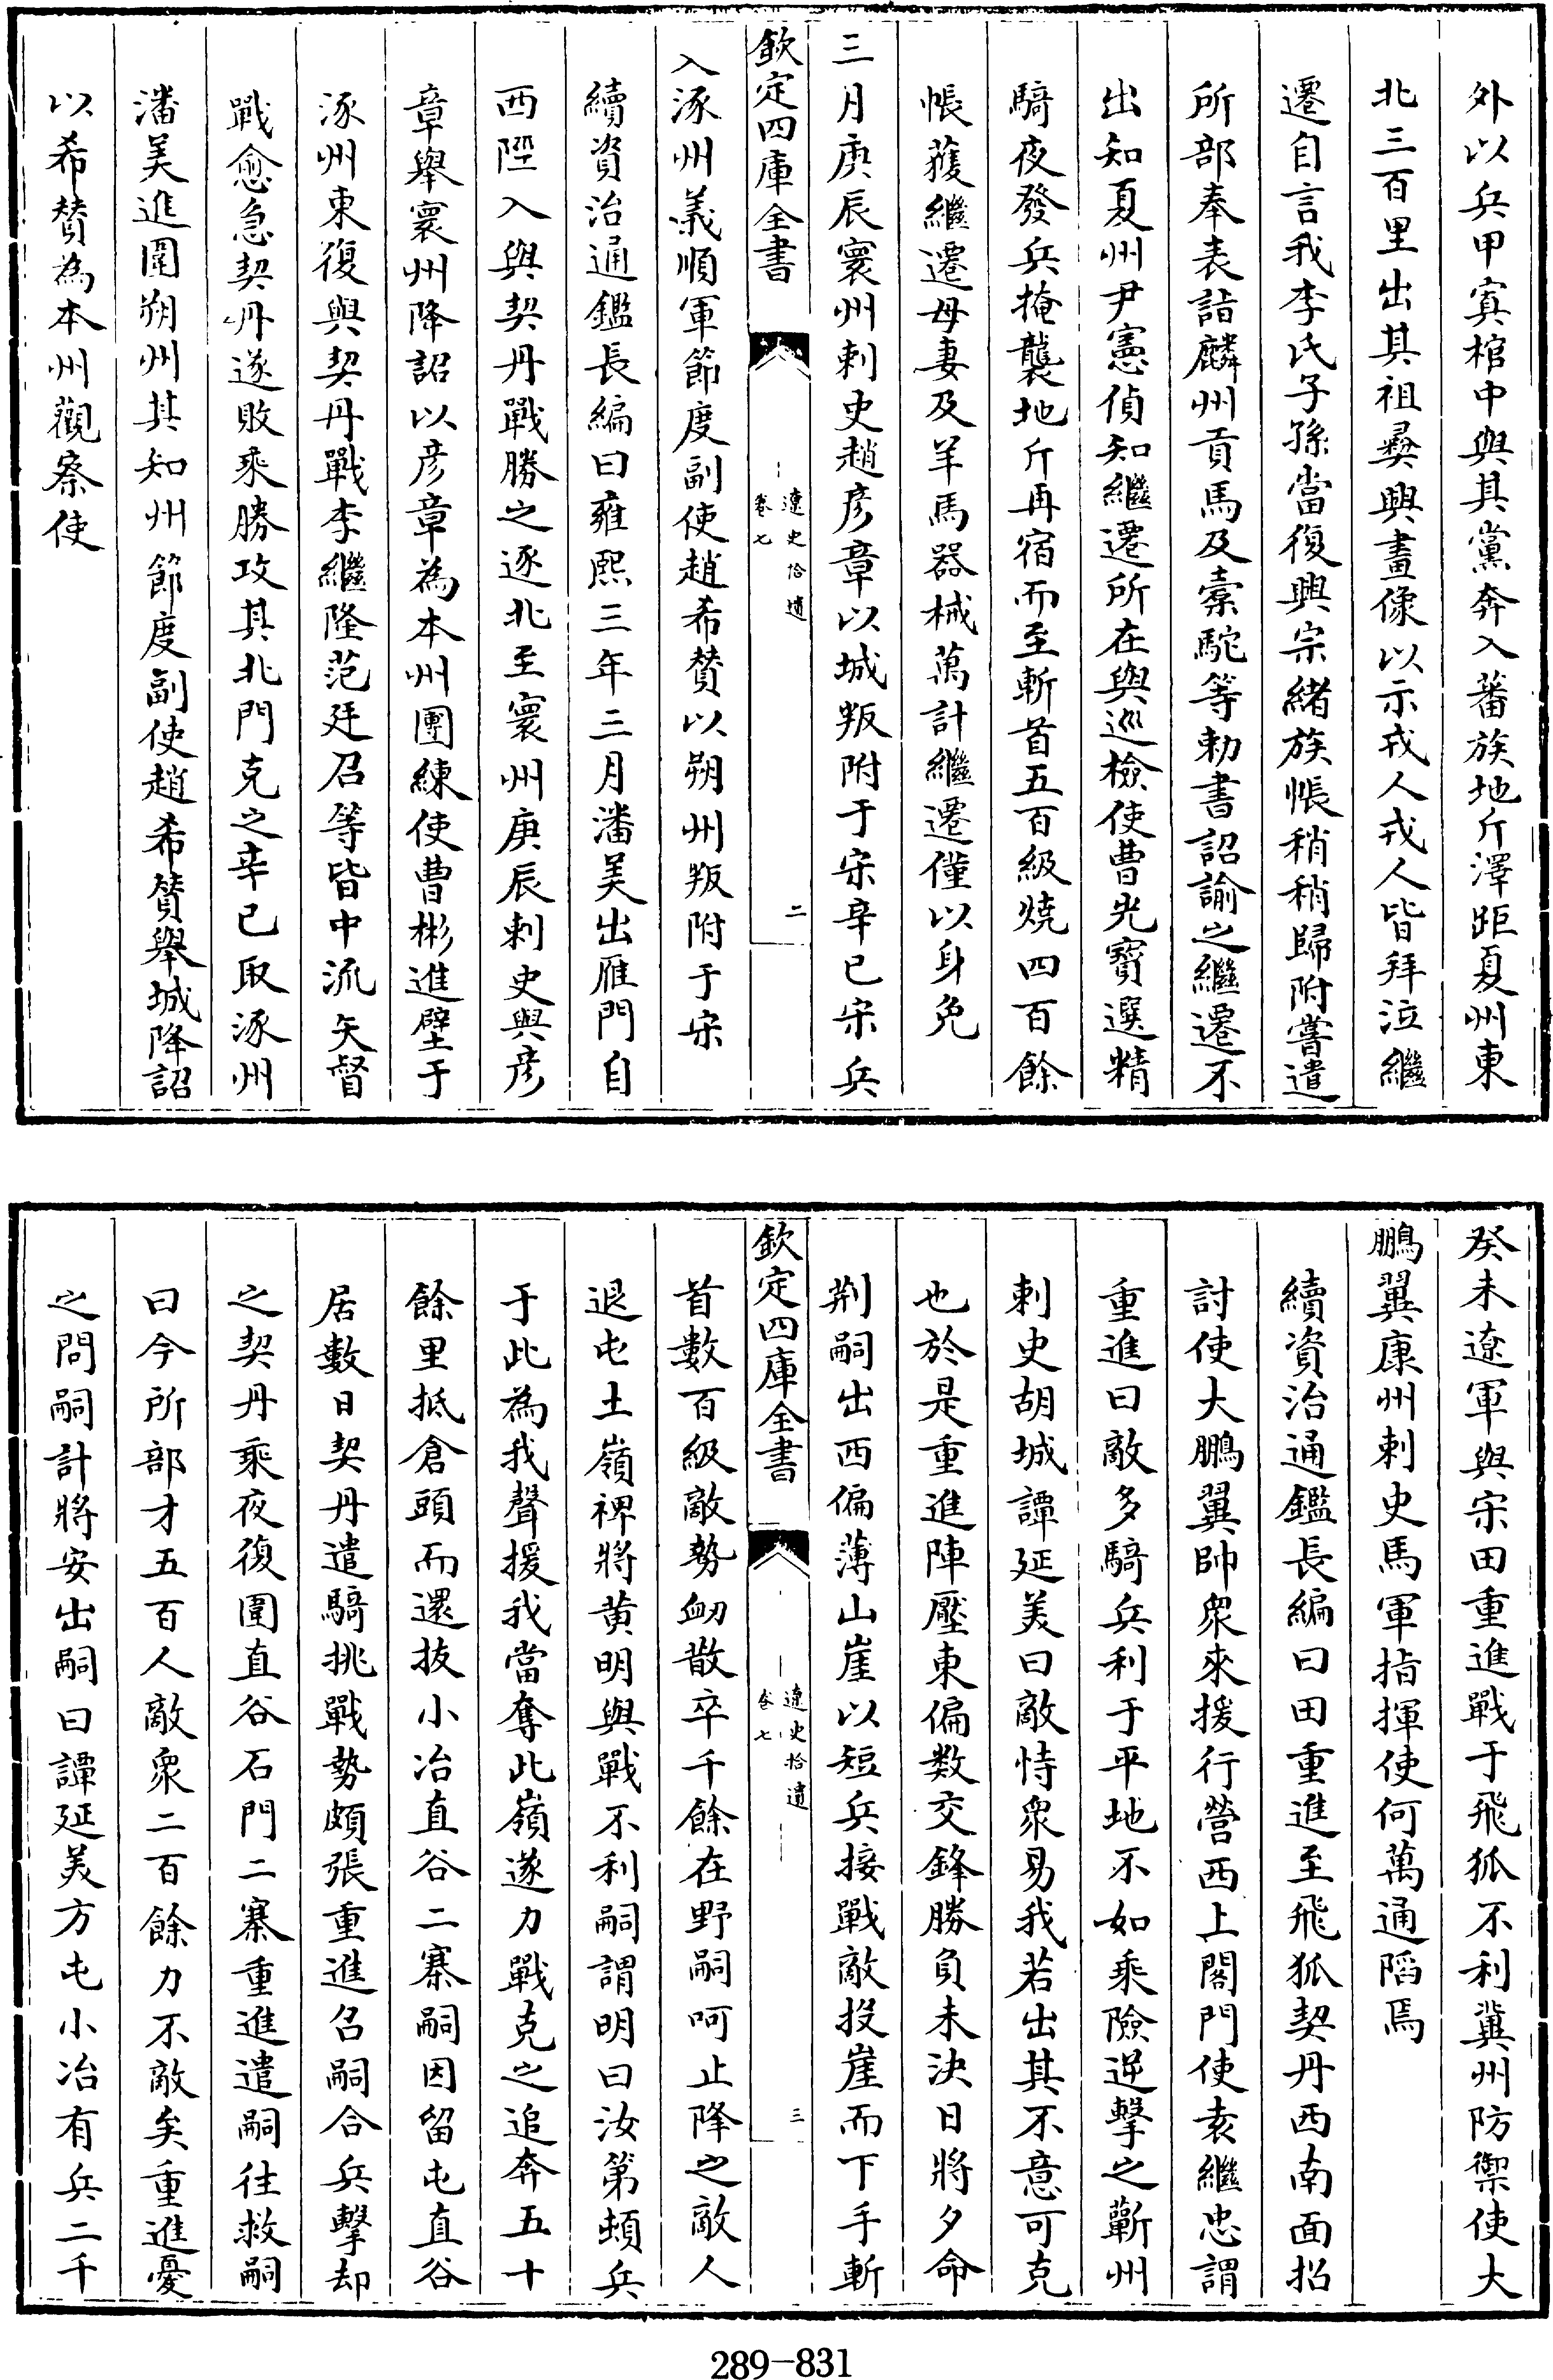 外以兵甲寘棺中與其黨奔入蕃族地斤澤距夏州東
北三百里出其祖彝興畫像以示戎人戎人皆拜泣繼
遷自言我李氏子孫當復興宗緒族帳稍稍歸附嘗遣
所部奉表詣麟州貢馬及橐駝等勅書詔諭之繼遷不
出知夏州尹憲偵知繼遷所在與巡檢使曹光實選精
騎夜發兵掩襲地斤再宿而至斬首五百級燒四百餘
帳獲繼遷母妻及羊馬器械萬計繼遷僅以身免
三月庚辰寰州刺史趙彥章以城叛附于宋辛巳宋兵
欽定四庫全書
遼史拾遺
卷七
二
入涿州義順軍節度副使趙希贊以朔州叛附于宋
續資治通鑑長編曰雍熙三年三月潘美出雁門自
西陘入與契丹戰勝之逐北至寰州庚辰刺史與彥
章舉寰州降詔以彥章為本州團練使曹彬進壁于
涿州東復與契丹戰李繼隆范廷召等皆中流矢督
戰愈急契丹遂敗乘勝攻其北門克之辛巳取涿州
潘美進圍朔州其知州節度副使趙希贊舉城降詔
以希贊為本州觀察使
癸未遼軍與宋田重進戰于飛狐不利冀州防禦使大
鵬翼康州刺史馬軍指揮使何萬通陷焉
續資治通鑑長編曰田重進至飛狐契丹西南面招
討使大鵬翼帥眾來援行營西上閤門使袁繼忠謂
重進曰敵多騎兵利于平地不如乘險逆擊之蘄州
刺史胡城譚延美曰敵恃眾易我若出其不意可克
也於是重進陣壓東偏數交鋒勝負未決日將夕命
荆嗣出西偏薄山崖以短兵接戰敵投崖而下手斬
欽定四庫全書
遼史拾遺
卷七
三
首數百級敵勢衂散卒千餘在野嗣呵止降之敵人
退屯土嶺裨將黃明與戰不利嗣謂明曰汝第頓兵
于此為我聲援我當奪此嶺遂力戰克之追奔五十
餘里抵倉頭而還拔小冶直谷二寨嗣因留屯直谷
居數日契丹遣騎挑戰勢頗張重進召嗣合兵擊却
之契丹乘夜復圍直谷石門二寨重進遣嗣往救嗣
曰今所部才五百人敵眾二百餘力不敵矣重進憂
之問嗣計將安出嗣曰譚延美方屯小冶有兵二千
289-831